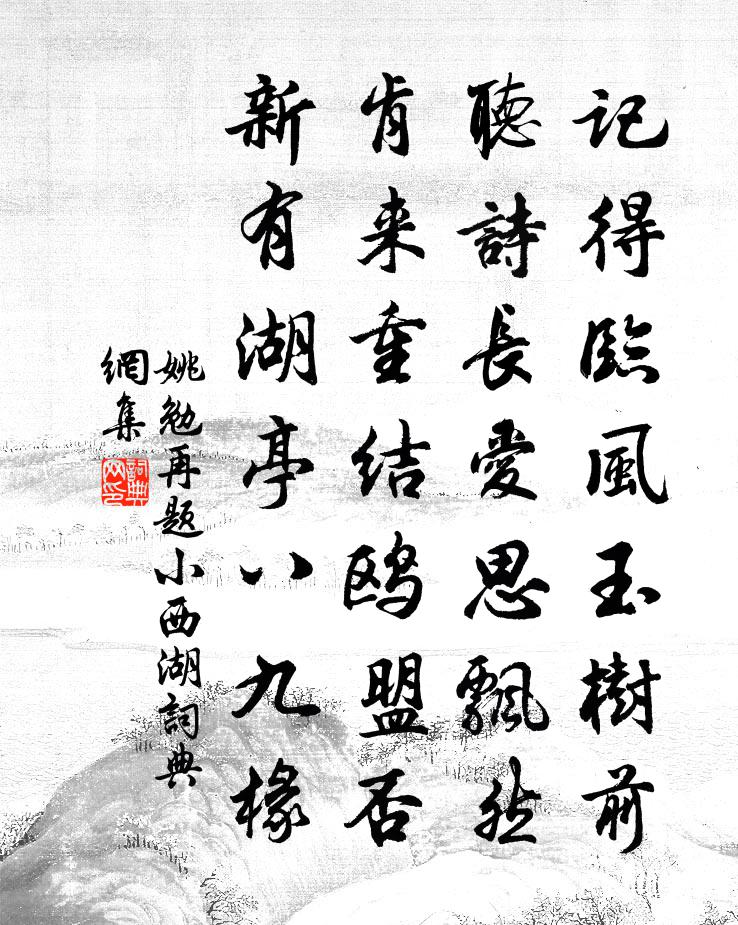 記得臨風玉樹前
聽詩長愛思飄然
肯来重结鸥盟否
新有湖亭八九椽
姚勉再题小西湖詞典
網集
詞典
网印